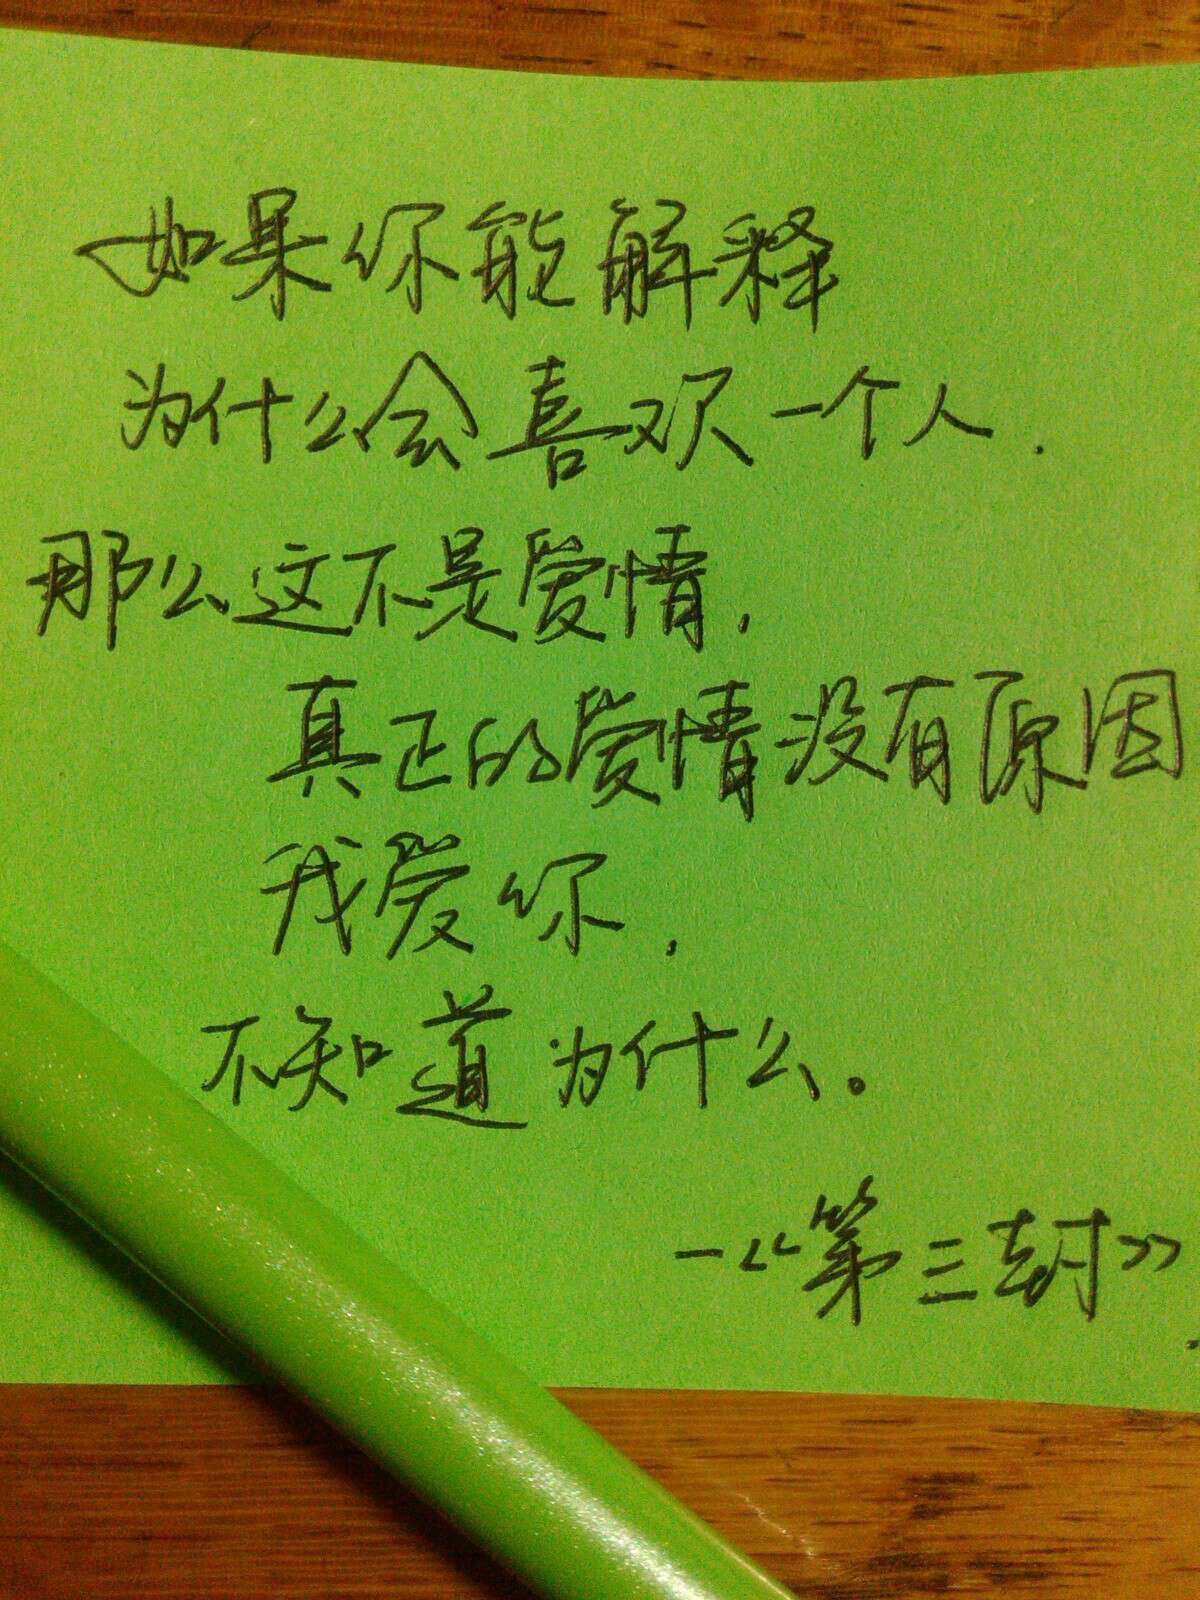 如果你能解释
为什么会喜欢一个人.
那么这不是爱情,
真正的爱情没有原因
我爱你,
不知道为什么。
-《第三封》.